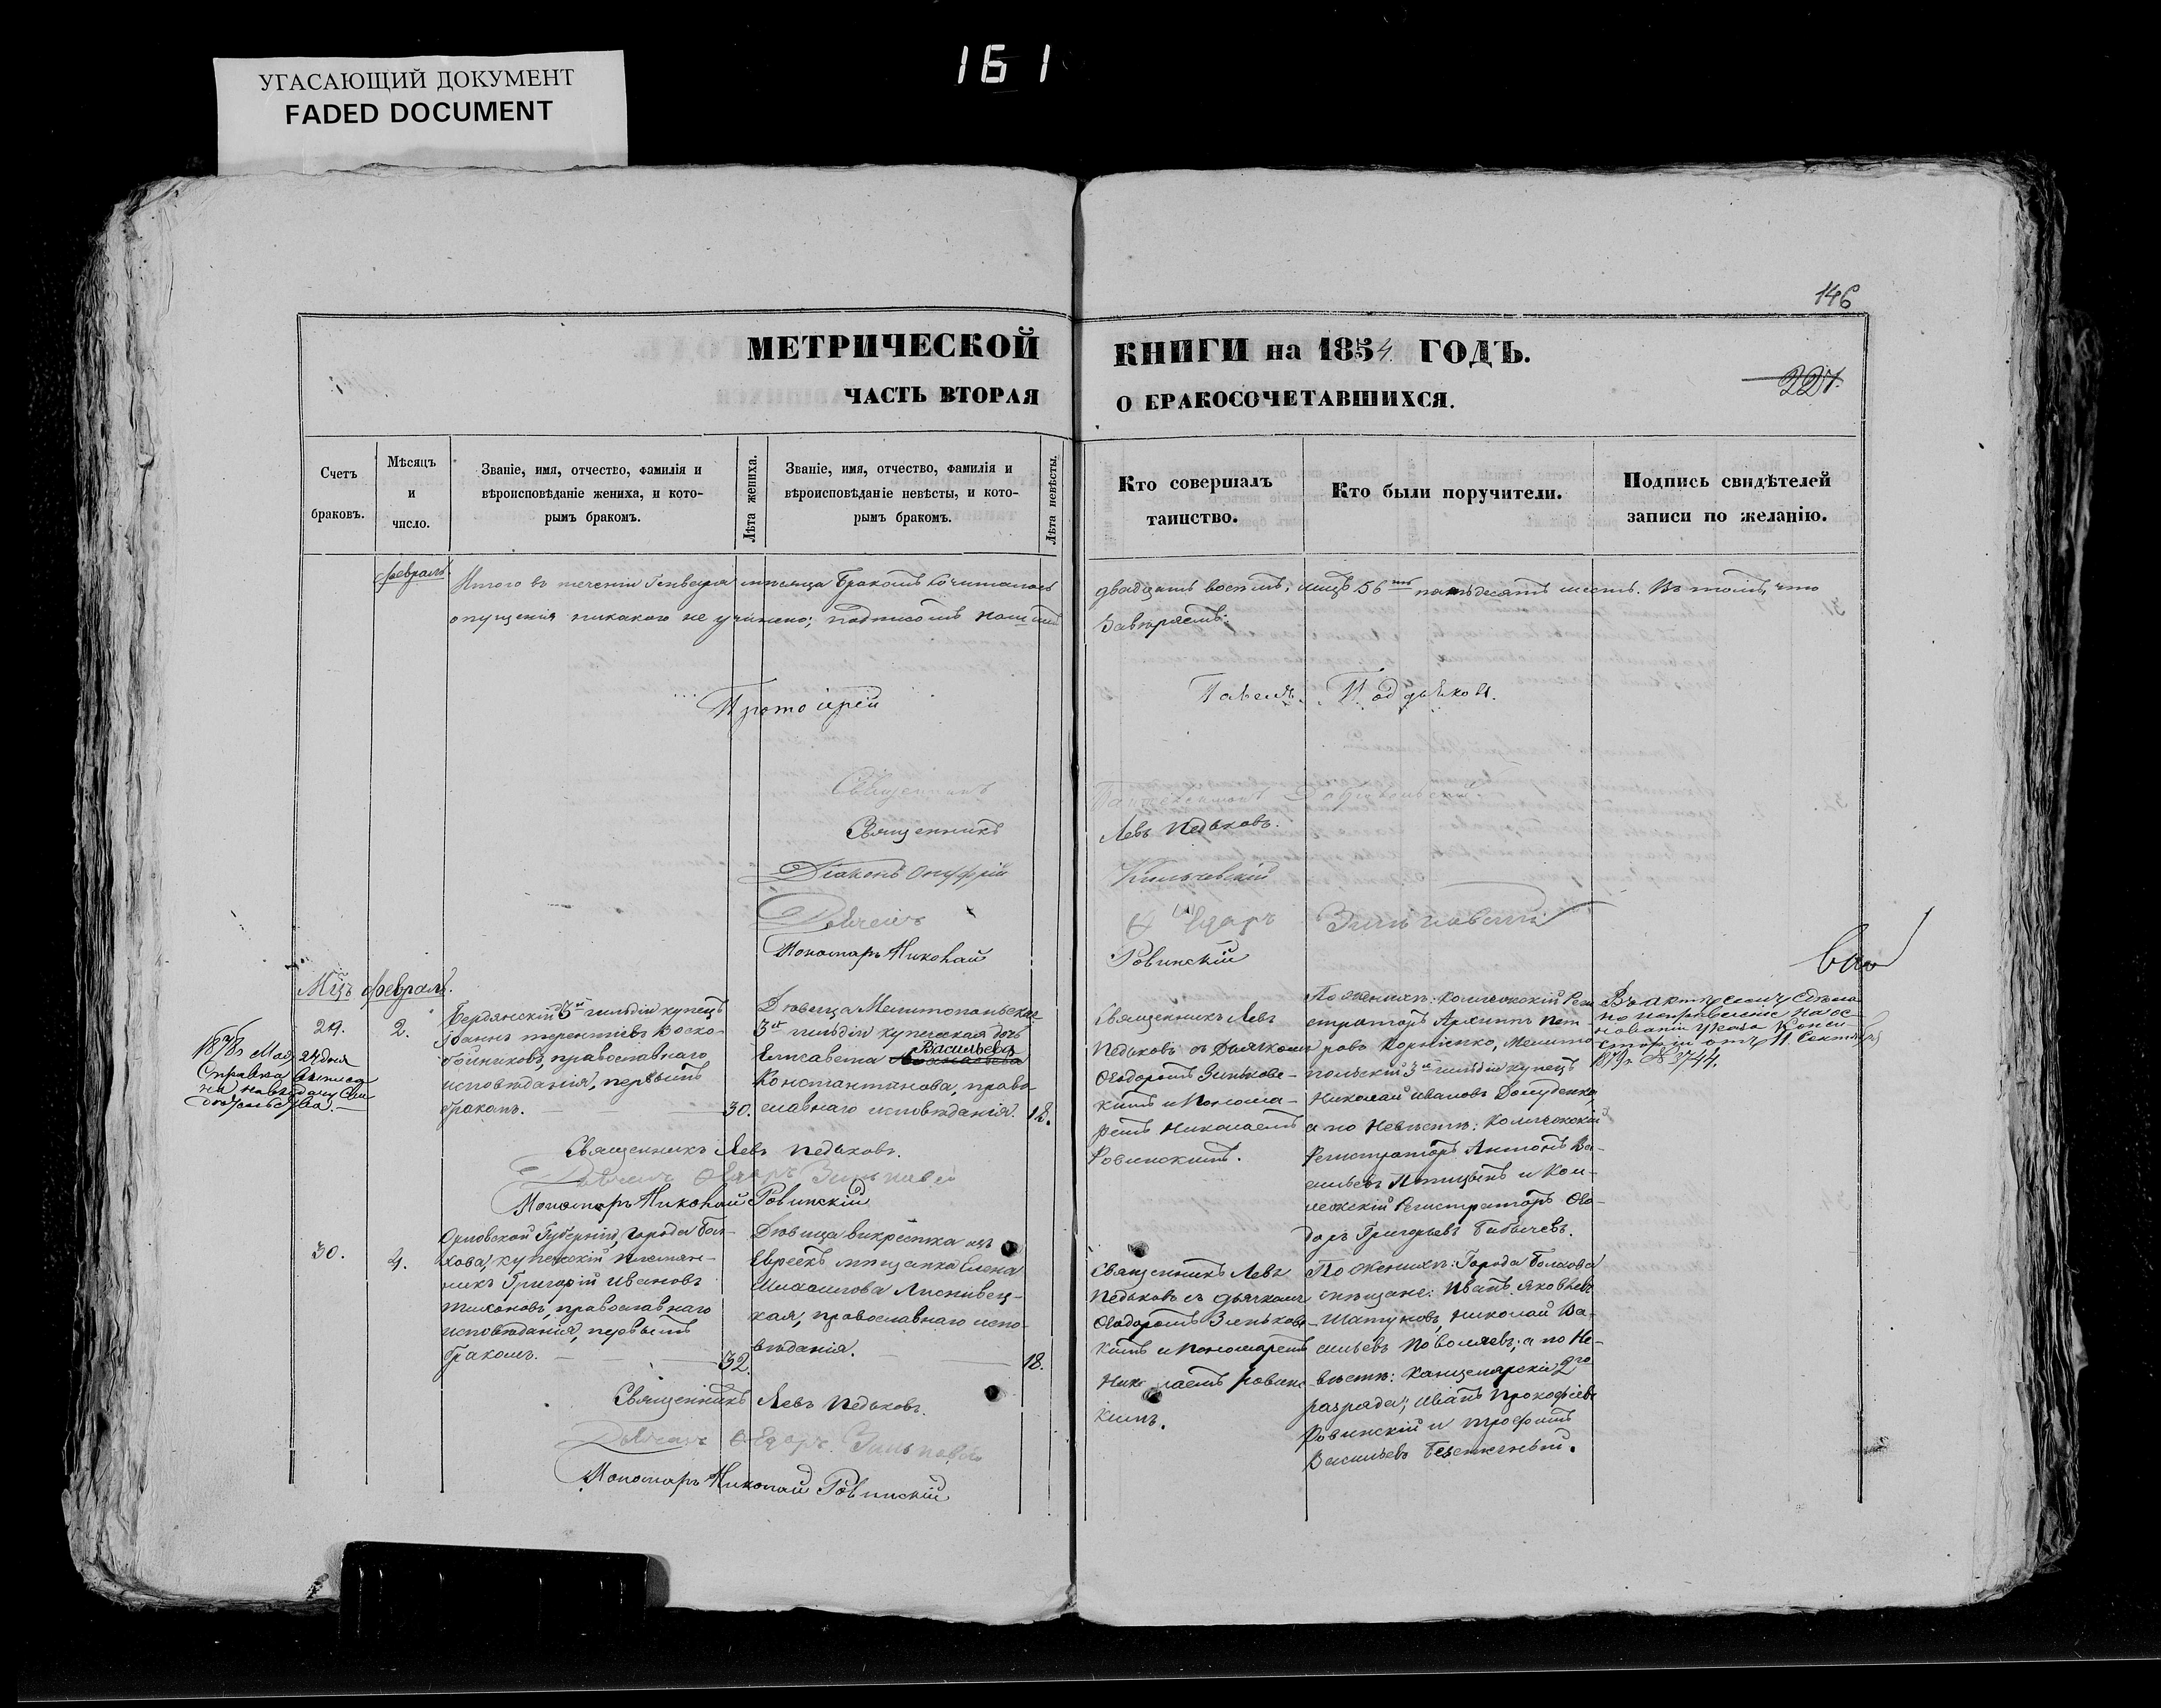 УГАСАЮЩИЙ ДОКУМЕНТ
FADED DOCUMENT
161
146
МЕТРИЧЕСКОЙ
ЧАСТЬ ВТОРАЯ
КНИГИ на 1854 ГОДЪ.
О БРАКОСОЧЕТАВШИХСЯ.
227.
Счетъ
браковъ.
Мѣсяцъ
и
число.
Званіе, имя, отчество, фамилія и
вѣроисповѣданіе жениха, и кото-
рымъ бракомъ.
Лѣта жениха.
Званіе, имя, отчество, фамилія и
вѣроисповѣданіе невѣсты, и кото-
рымъ бракомъ.
Лѣта невѣсты.
Кто совершалъ
таинство.
Кто были поручители.
Подпись свидѣтелей
записи по желанію.
февраль.
Итого въ теченіи Генваря мѣсяца бракомъ сочиталось
двадцать восемь, лицъ 56ть пятьдесятъ шесть. Въ томъ, что
опущенія никакого не учинено; подписомъ нашимъ
Завѣряемъ:
Протоіерей
Павелъ
Священникъ
Священникъ
Левъ Педьковъ.
Діаконъ Онуфрій
Дьячекъ
Ѳеодоръ Зиньковскій
Пономарь Николай
Ровинскій
Мцъ февраль.
29.
2.
Бердянскій 3й гильдіи купецъ
Іоаннъ Терентіевъ Воско-
бойниковъ, православнаго
исповѣданія, первымъ
бракомъ.
30.
Дѣвица Мелитопольская
3й гильдіи купеческая дочь
Елисавета Васильева
Константинова, право-
славнаго исповѣданія.
18.
1878г Мая 24 дня
Справка
Священникъ Левъ
Педьковъ съ Дьячкомъ
Ѳеодоромъ Зиньковс-
кимъ и Понома-
ремъ Николаемъ
Ровинскимъ.
По женихѣ: Коллежскій Реги
страторъ Архипъ Пет
ровъ Корніенко, Мелито
польскій 3й гильдіи купецъ
Николай Ивановъ
а по Невѣстѣ: Коллежскій
Регистраторъ Антонъ Ва-
сильевъ Птицынъ и Кол-
лежскій Регистраторъ Ѳео-
доръ Григорьевъ Бибичевъ.
Въ актѣ семъ сдѣла
но исправленіе на ос-
нованіи указа Конси
сторіи отъ 11 Сентября
1879г № 3744.
Священникъ Левъ Педьковъ.
Дьячекъ Ѳеодоръ Зиньковскій
Пономарь Николай Ровинскій
30.
4.
Орловской Губерніи, города Бол-
хова, купеческій племян-
никъ Григорій Ивановъ
Тихоновъ, православнаго
исповѣданія, первымъ
бракомъ.
32.
Дѣвица викрестка изъ
Евреекъ мѣщанка Елена
Михайлова
кая, православнаго испо-
вѣданія.
18.
Священникъ Левъ
Педьковъ съ дьячкомъ
Ѳеодоромъ Зиньковс-
кимъ и пономаремъ
Николаемъ Ровинс-
кимъ.
По женихѣ: Города Болхова
мѣщане: Иванъ Яковлевъ
Шатуновъ, Николай Ва-
сильевъ Поволяевъ; а по Не-
вѣстѣ: Канцелярскій 2го
разряда; Иванъ Прокофіевъ
Ровинскій и Трофимъ
Васильевъ
Священникъ Левъ Педьковъ.
Дьячекъ Ѳеодоръ Зиньковскій
Пономарь Николай Ровинскій